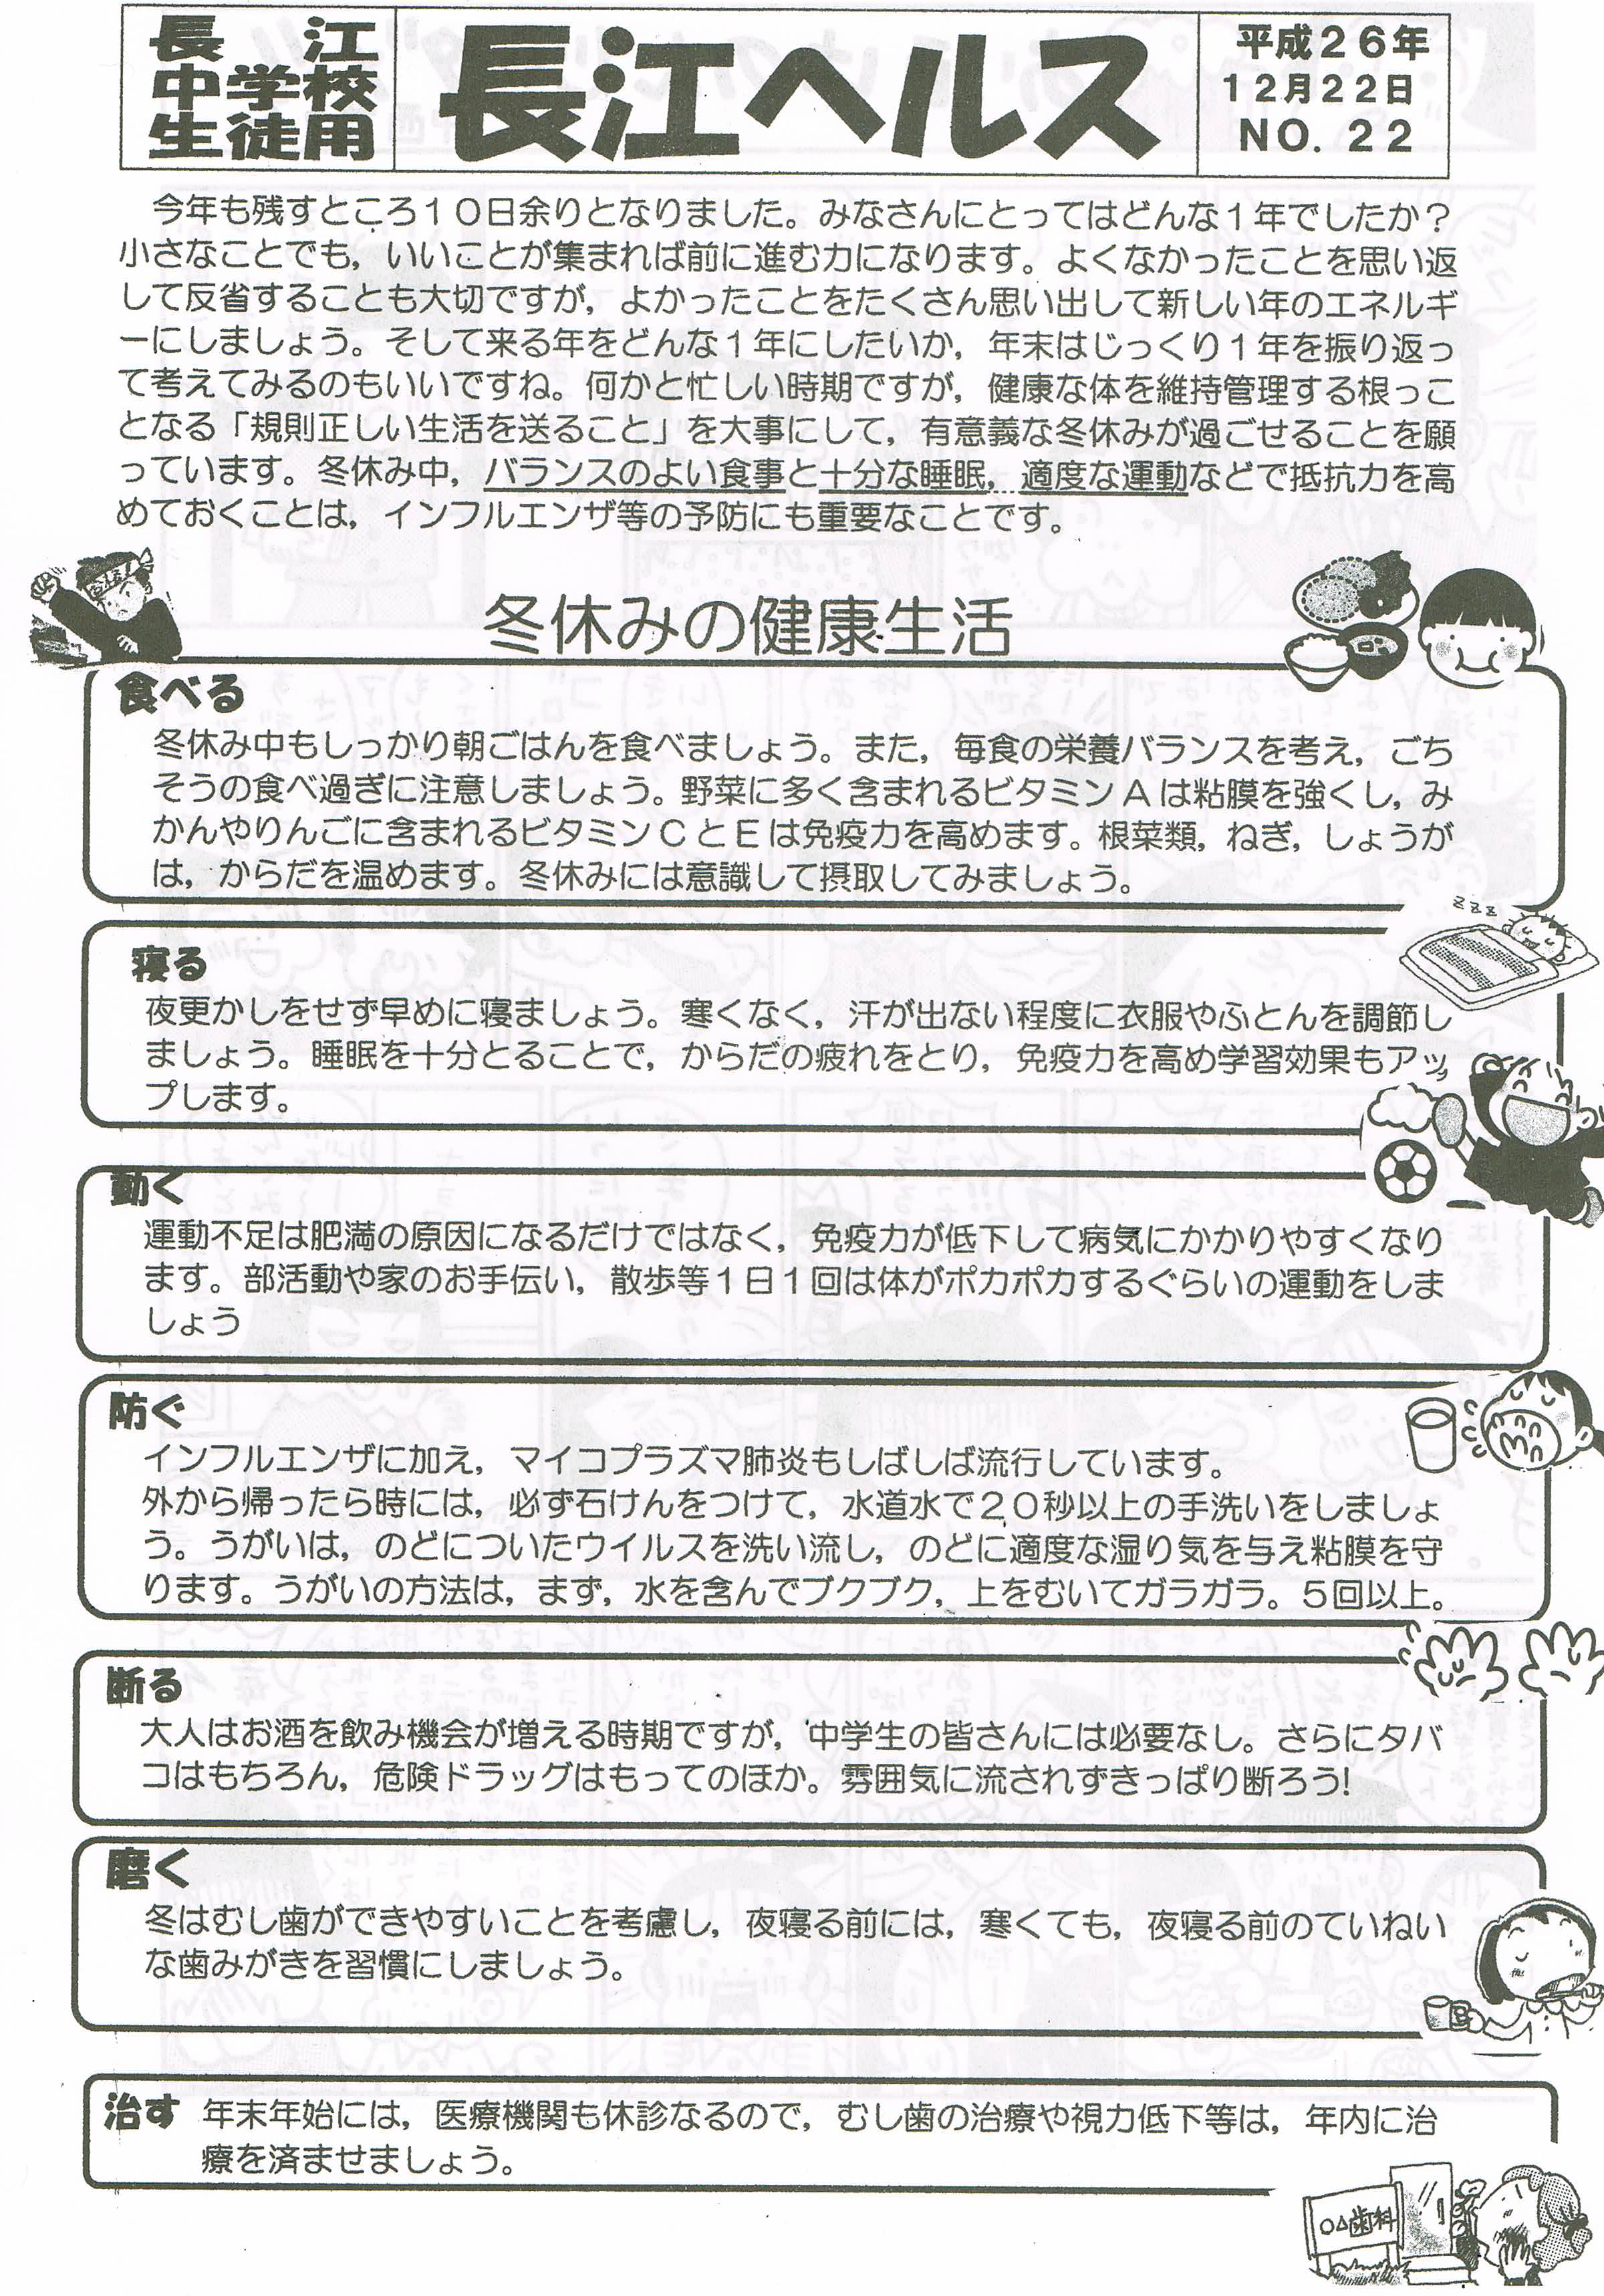 長江
中学校
生徒用
長江ヘルス
平成２６年
１２月２２日
ＮＯ．２２
今年も残すところ１０日余りとなりました。みなさんにとってはどんな１年でしたか？
小さなことでも，いいことが集まれば前に進む力になります。よくなかったことを思い返
して反省することも大切ですが，よかったことをたくさん思い出して新しい年のエネルギ
ーにしましょう。そして来る年をどんな１年にしたいか，年末はじっくり１年を振り返っ
て考えてみるのもいいですね。何かと忙しい時期ですが，健康な体を維持管理する根っこ
となる「規則正しい生活を送ること」を大事にして，有意義な冬休みが過ごせることを願
っています。冬休み中，バランスのよい食事と十分な睡眠，適度な運動などで抵抗力を高
めておくことは，インフルエンザ等の予防にも重要なことです。
冬休みの健康生活
食べる
冬休み中もしっかり朝ごはんを食べましょう。また，毎食の栄養バランスを考え，ごち
そうの食べ過ぎに注意しましょう。野菜に多く含まれるビタミンＡは粘膜を強くし，み
かんやりんごに含まれるビタミンＣとＥは免疫力を高めます。根菜類，ねぎ，しょうが
は，からだを温めます。冬休みには意識して摂取してみましょう。
zzz
寝る
夜更かしをせず早めに寝ましょう。寒くなく，汗が出ない程度に衣服やふとんを調節し
ましょう。睡眠を十分とることで，からだの疲れをとり，免疫力を高め学習効果もアッ
プします。
動く
運動不足は肥満の原因になるだけではなく，免疫力が低下して病気にかかりやすくなり
ます。部活動や家のお手伝い，散歩等１日１回は体がポカポカするぐらいの運動をしま
しょう
防ぐ
インフルエンザに加え，マイコプラズマ肺炎もしばしば流行しています。
外から帰ったら時には，必ず石けんをつけて，水道水で２０秒以上の手洗いをしましょ
う。うがいは，のどについたウイルスを洗い流し，のどに適度な湿り気を与え粘膜を守
ります。うがいの方法は，まず，水を含んでブクブク，上をむいてガラガラ。５回以上。
断る
大人はお酒を飲み機会が増える時期ですが，中学生の皆さんには必要なし。さらにタバ
コはもちろん，危険ドラッグはもってのほか。雰囲気に流されずきっぱり断ろう！
磨く
冬はむし歯ができやすいことを考慮し，夜寝る前には，寒くても，夜寝る前のていねい
な歯みがきを習慣にしましょう。
治す
年末年始には，医療機関も休診なるので，むし歯の治療や視力低下等は，年内に治
療を済ませましょう。
○△歯科